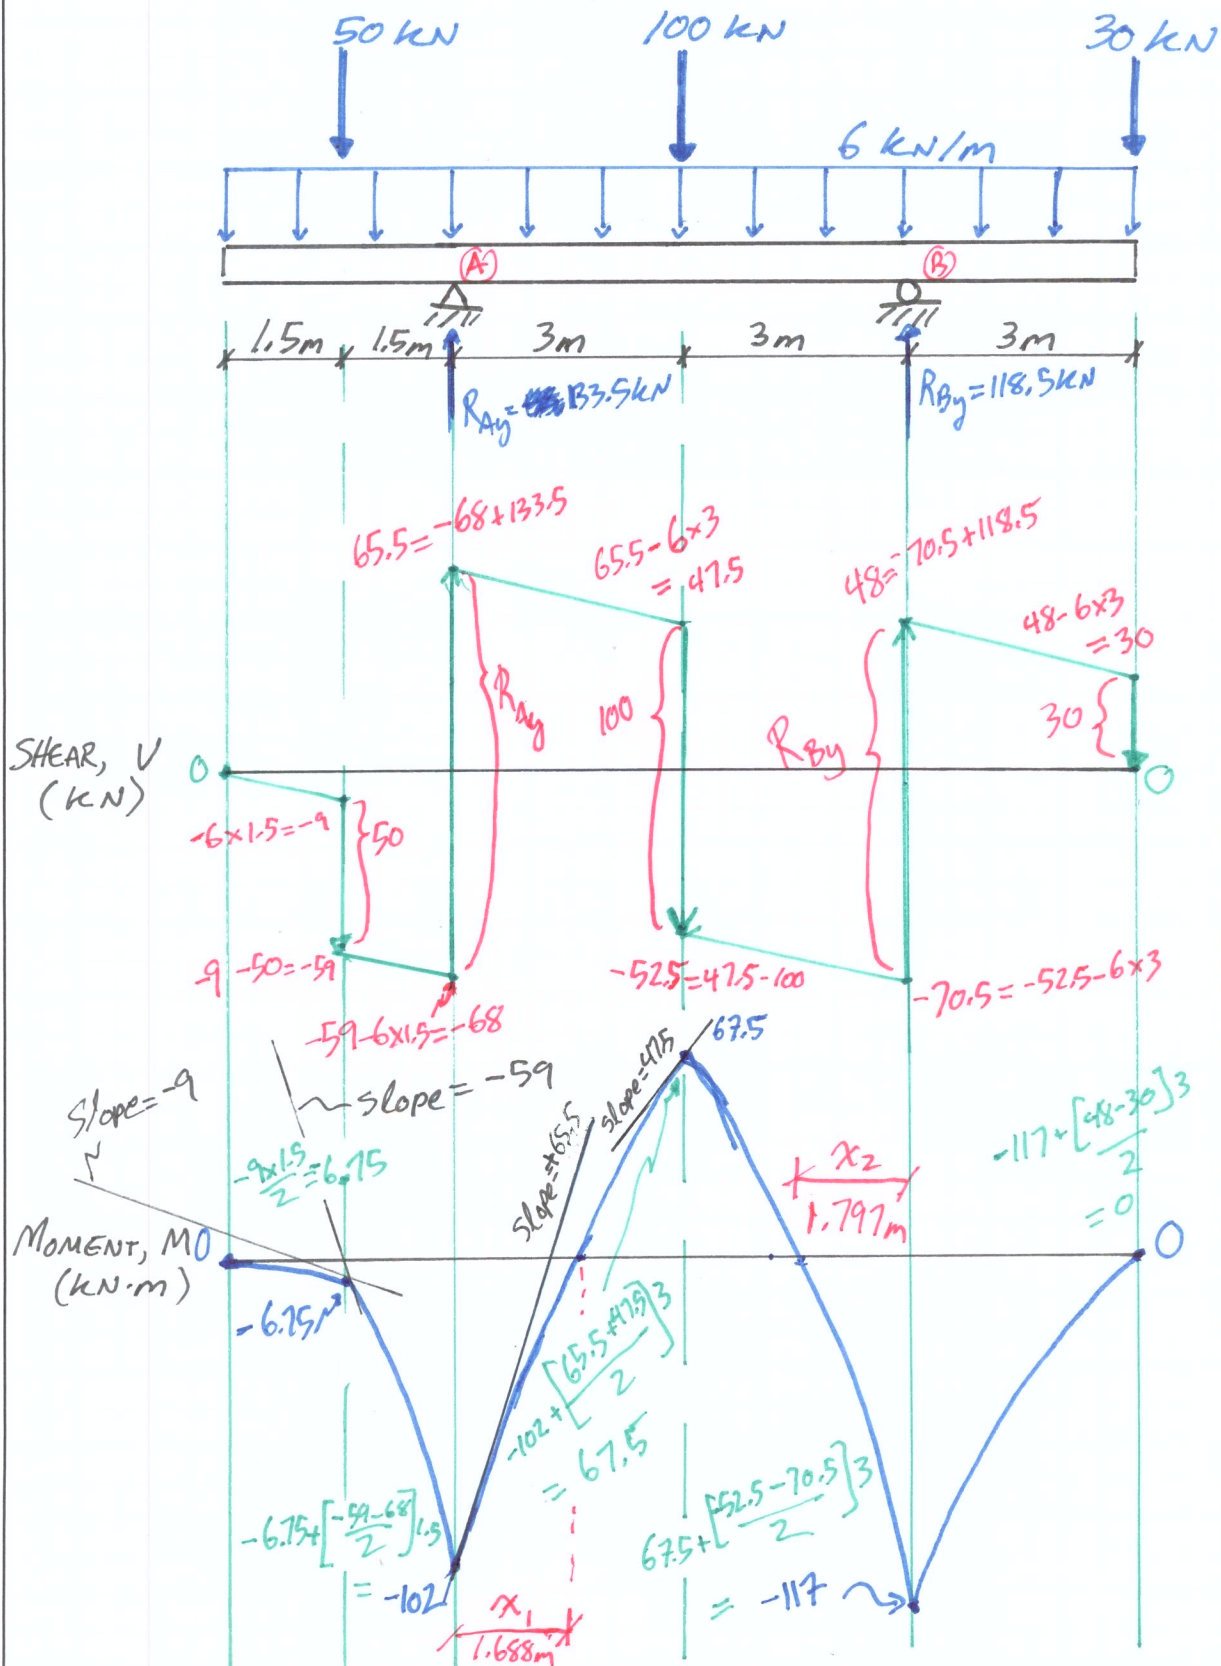 50 KN
100 KN
30 KN
6 KN/m
A
B
1.5m
1.5m
3m
3m
3m
RAy=133.5KN
RBy=118.5KN
65.5=-68+133.5
65.5-6×3
= 47.5
48=-70.5+118.5
48-6×3
= 30
RAy
100
RBy
30
SHEAR, V
(KN)
0
0
-6×1.5=-9
50
-9-50=-59
-52.5=47.5-100
-70.5=-52.5-6×3
-59-6×1.5=-68
67.5
slope=-9
slope=-59
slope=+65.5
slope=47.5
-9×1.5/2=6.75
x2
1.797m
-117+[48-30/2]3
= 0
MOMENT, M
(KN·m)
0
0
-6.75
-102+[65.5+47.5/2]3
= 67.5
-6.75+[-59-68/2]1.5
= -102
67.5+[-52.5-70.5/2]3
= -117
x1
1.688m